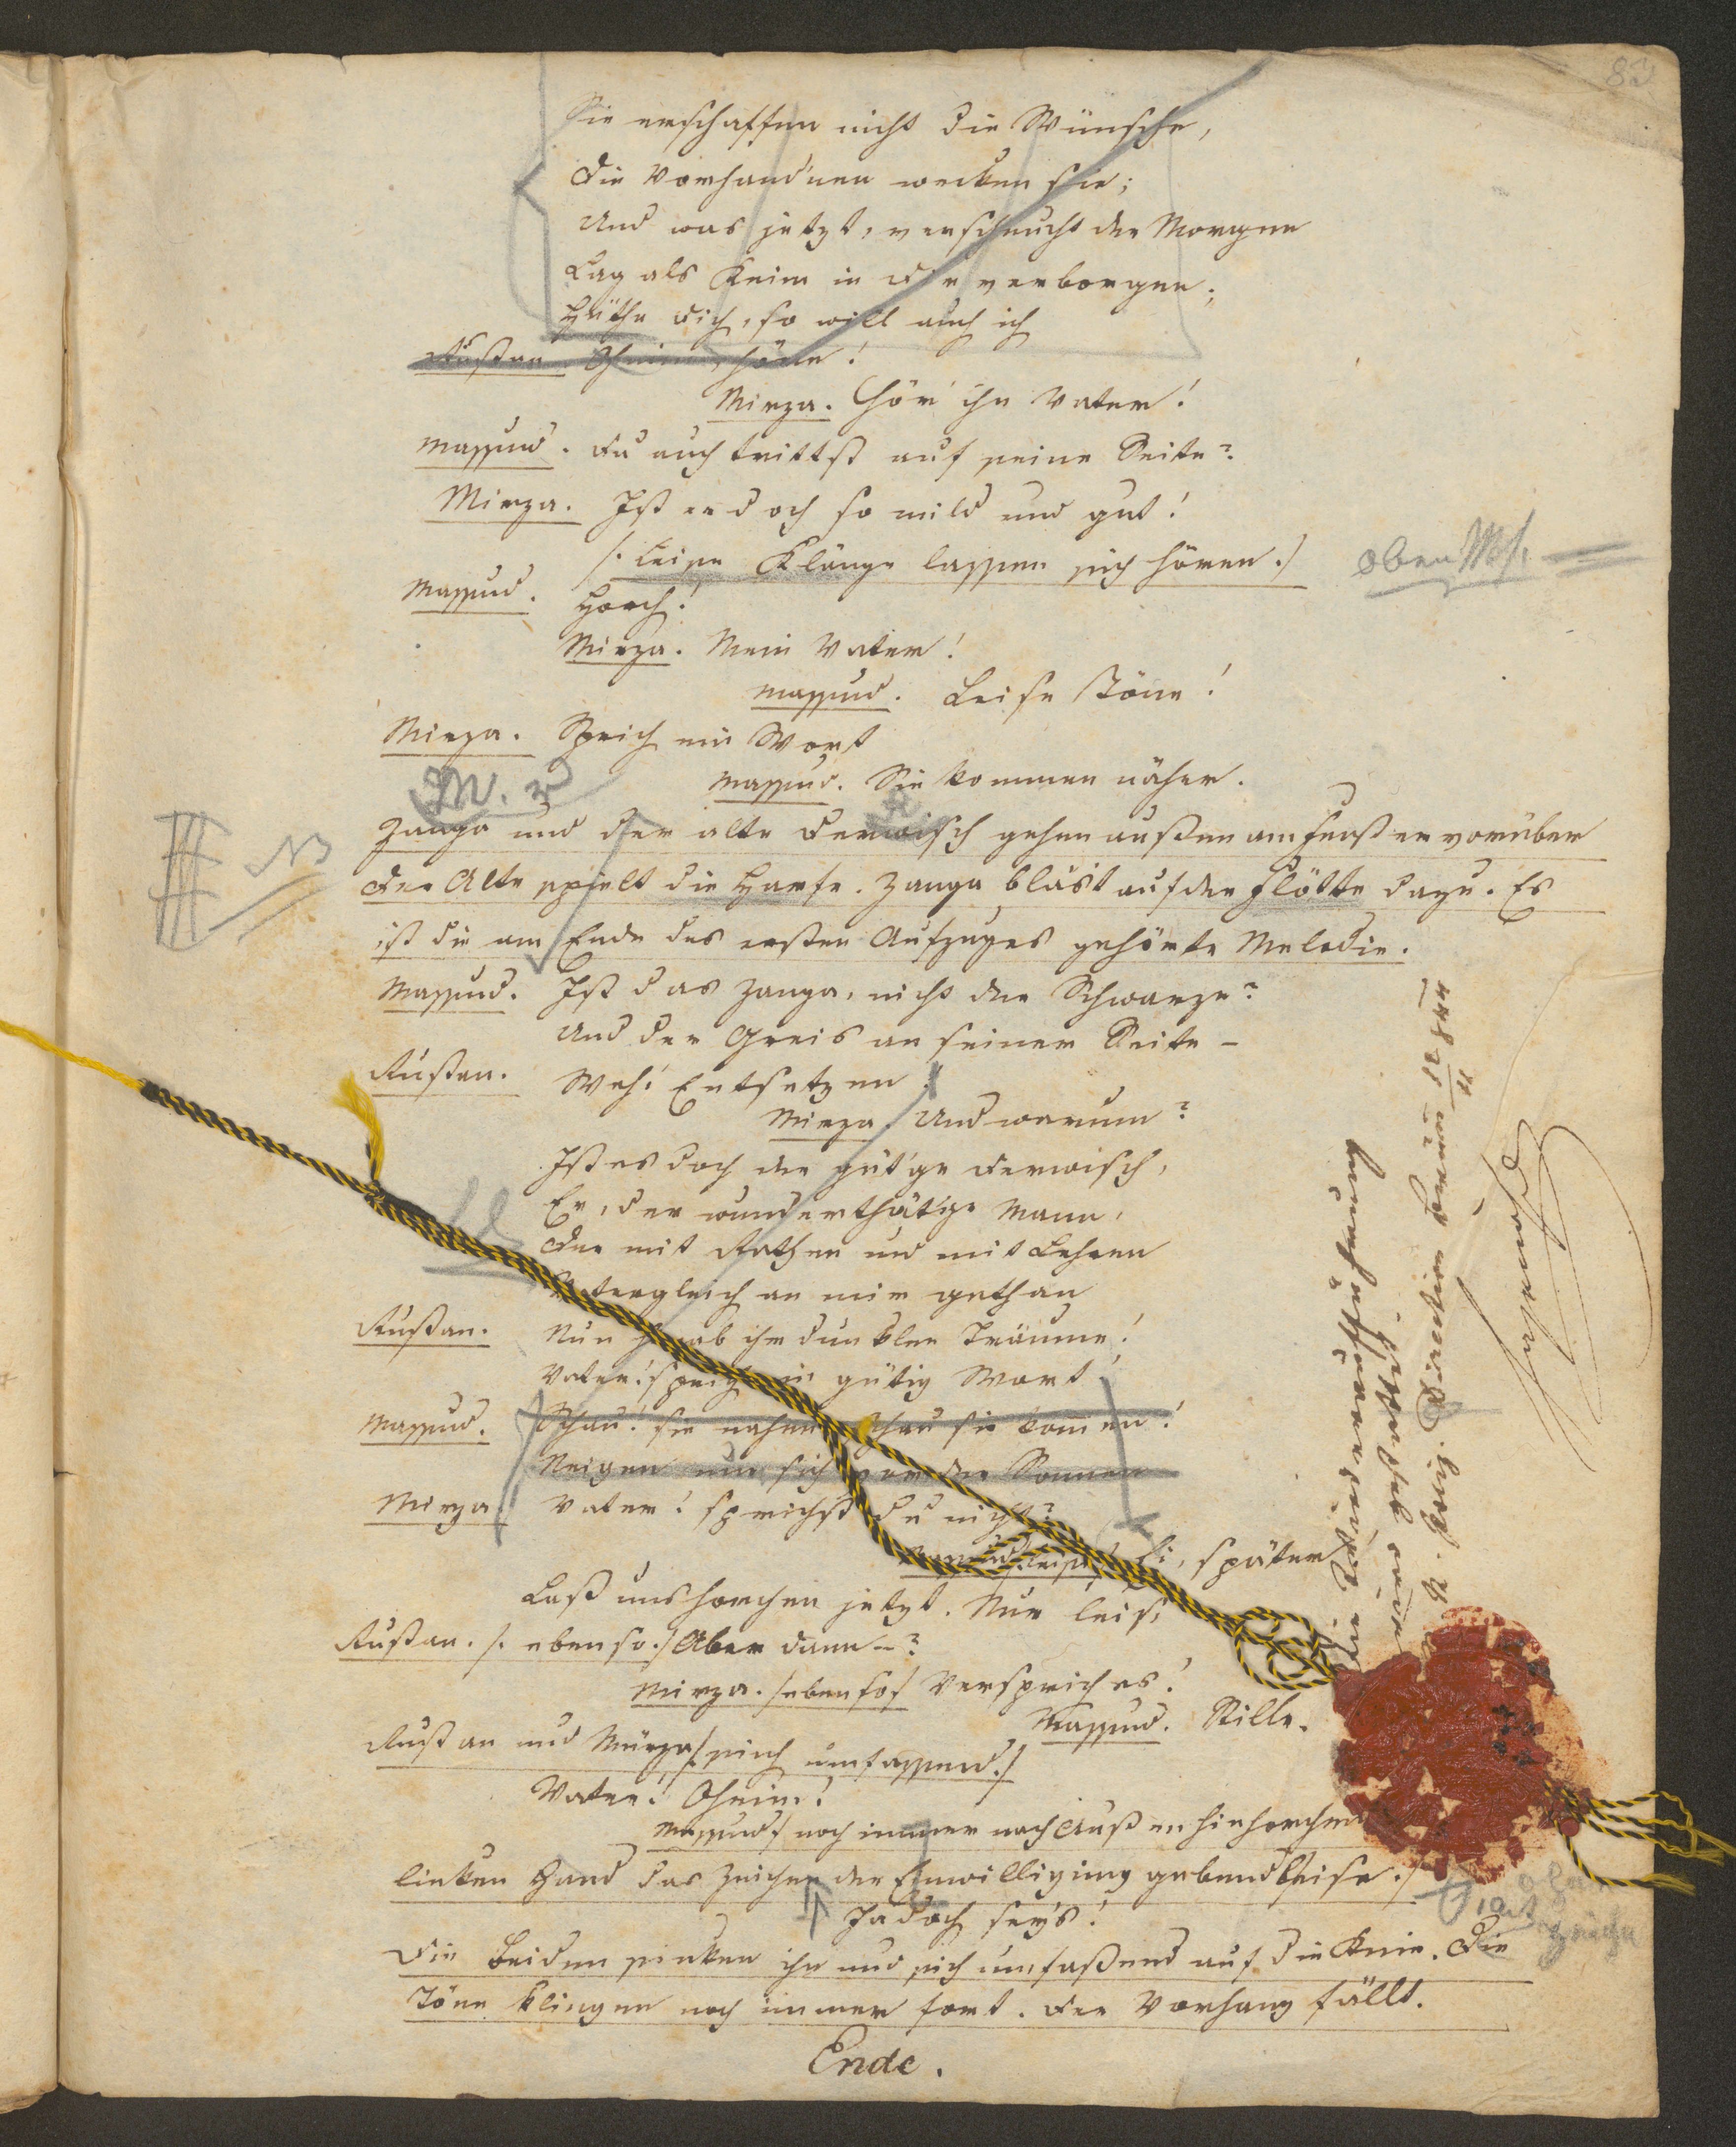 83
Sie erschaffen nicht die Wünsche,
Die Vorhand'nen wecken sie;
Und was jetzt, verscheucht der Morgen
Lag als Keim in dir verborgen.
Hüthe dich, so will auch ich
Rustan. Oheim, höre!
Mirza. Hör' ihn Vater!
Massud. Du auch trittst auf seine Seite?
Mirza. Ist er doch so mild und gut!
/: Leise Klänge lassen sich hören :/
oben
Massud. Horch!
Mirza. Mein Vater!
Massud. Leise Töne!
Mirza. Sprich ein Wort
Massud. Sie kommen näher.
M.
Zanga und der alte Derwisch gehen außen am Fenster vorüber
NB
Der Alte spielt die Harfe. Zanga bläst auf der Flötte dazu. Es
ist die am Ende des ersten Aufzuges gehörte Melodie.
Massud. Ist das Zanga, nicht der Schwarze?
Und der Greis an seiner Seite –
Rustan. Weh! Entsetzen!
Mirza. Und warum?
Ist es doch der güt'ge Derwisch,
Er, der wunderthät'ge Mann,
Der mit Rathen und mit Lehren
Vatergleich an mir gethan
Rustan. Nun ihr dunklen Träume!
Vater! sprich ein gütig Wort!
Massud. Schau! sie nahen, schau sie kommen!
Neigen nun sich vor der Sonnen
Mirza. Vater! sprichst du nicht?
Massud /leise/ Ei, später
Laß uns horchen jetzt. Nur leis'
Rustan. /: ebenso :/ Aber dann –?
Mirza. /ebenso/ Versprich es!
Massud. Stille.
Rustan und Mirza /: sich umfassend :/
Vater! Oheim!
Massud / noch immer nach Außen hinhorchend
linken Hand das Zeichen der Einwilligung gebend leise :/
Ja doch sey's!
Die Beiden sinken ihn und sich umfaßend auf die Knie. Die
Töne klingen noch immer fort. Der Vorhang fällt.
Ende.